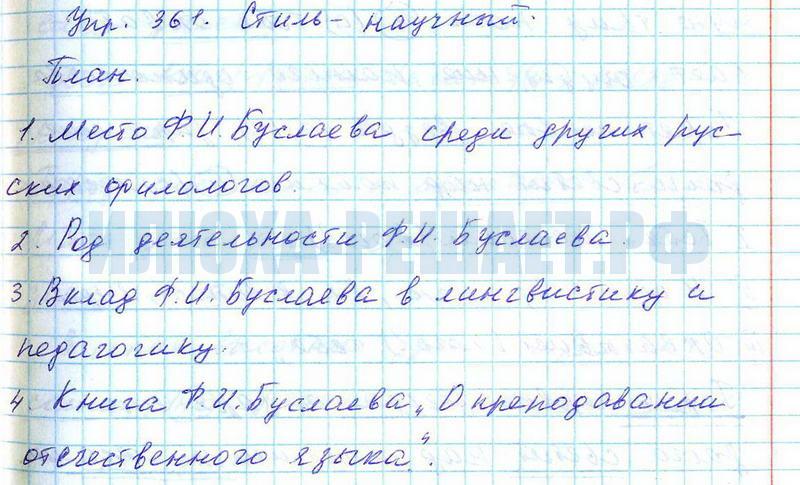 Упр. 361. Стиль – научный.
План.
1. Место Ф.И. Буслаева среди других рус-
ских филологов.
2. Род деятельности Ф.И. Буслаева.
ИЛЮХА-РЕШАЕТ.РФ
3. Вклад Ф.И. Буслаева в лингвистику и
педагогику.
4. Книга Ф.И. Буслаева „О преподавании
отечественного языка“.